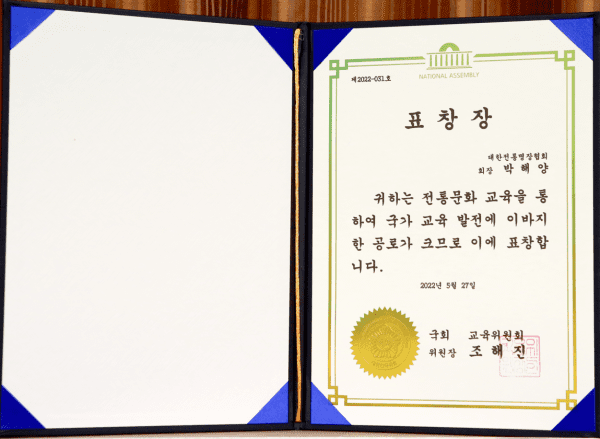 NATIONAL ASSEMBLY
제2022-031호
표창장
대한전통명장협회
회장 박해양
귀하는 전통문화 교육을 통
하여 국가 교육 발전에 이바지
한 공로가 크므로 이에 표창합
니다.
2022년 5월 27일
국회 교육위원회
위원장 조해진